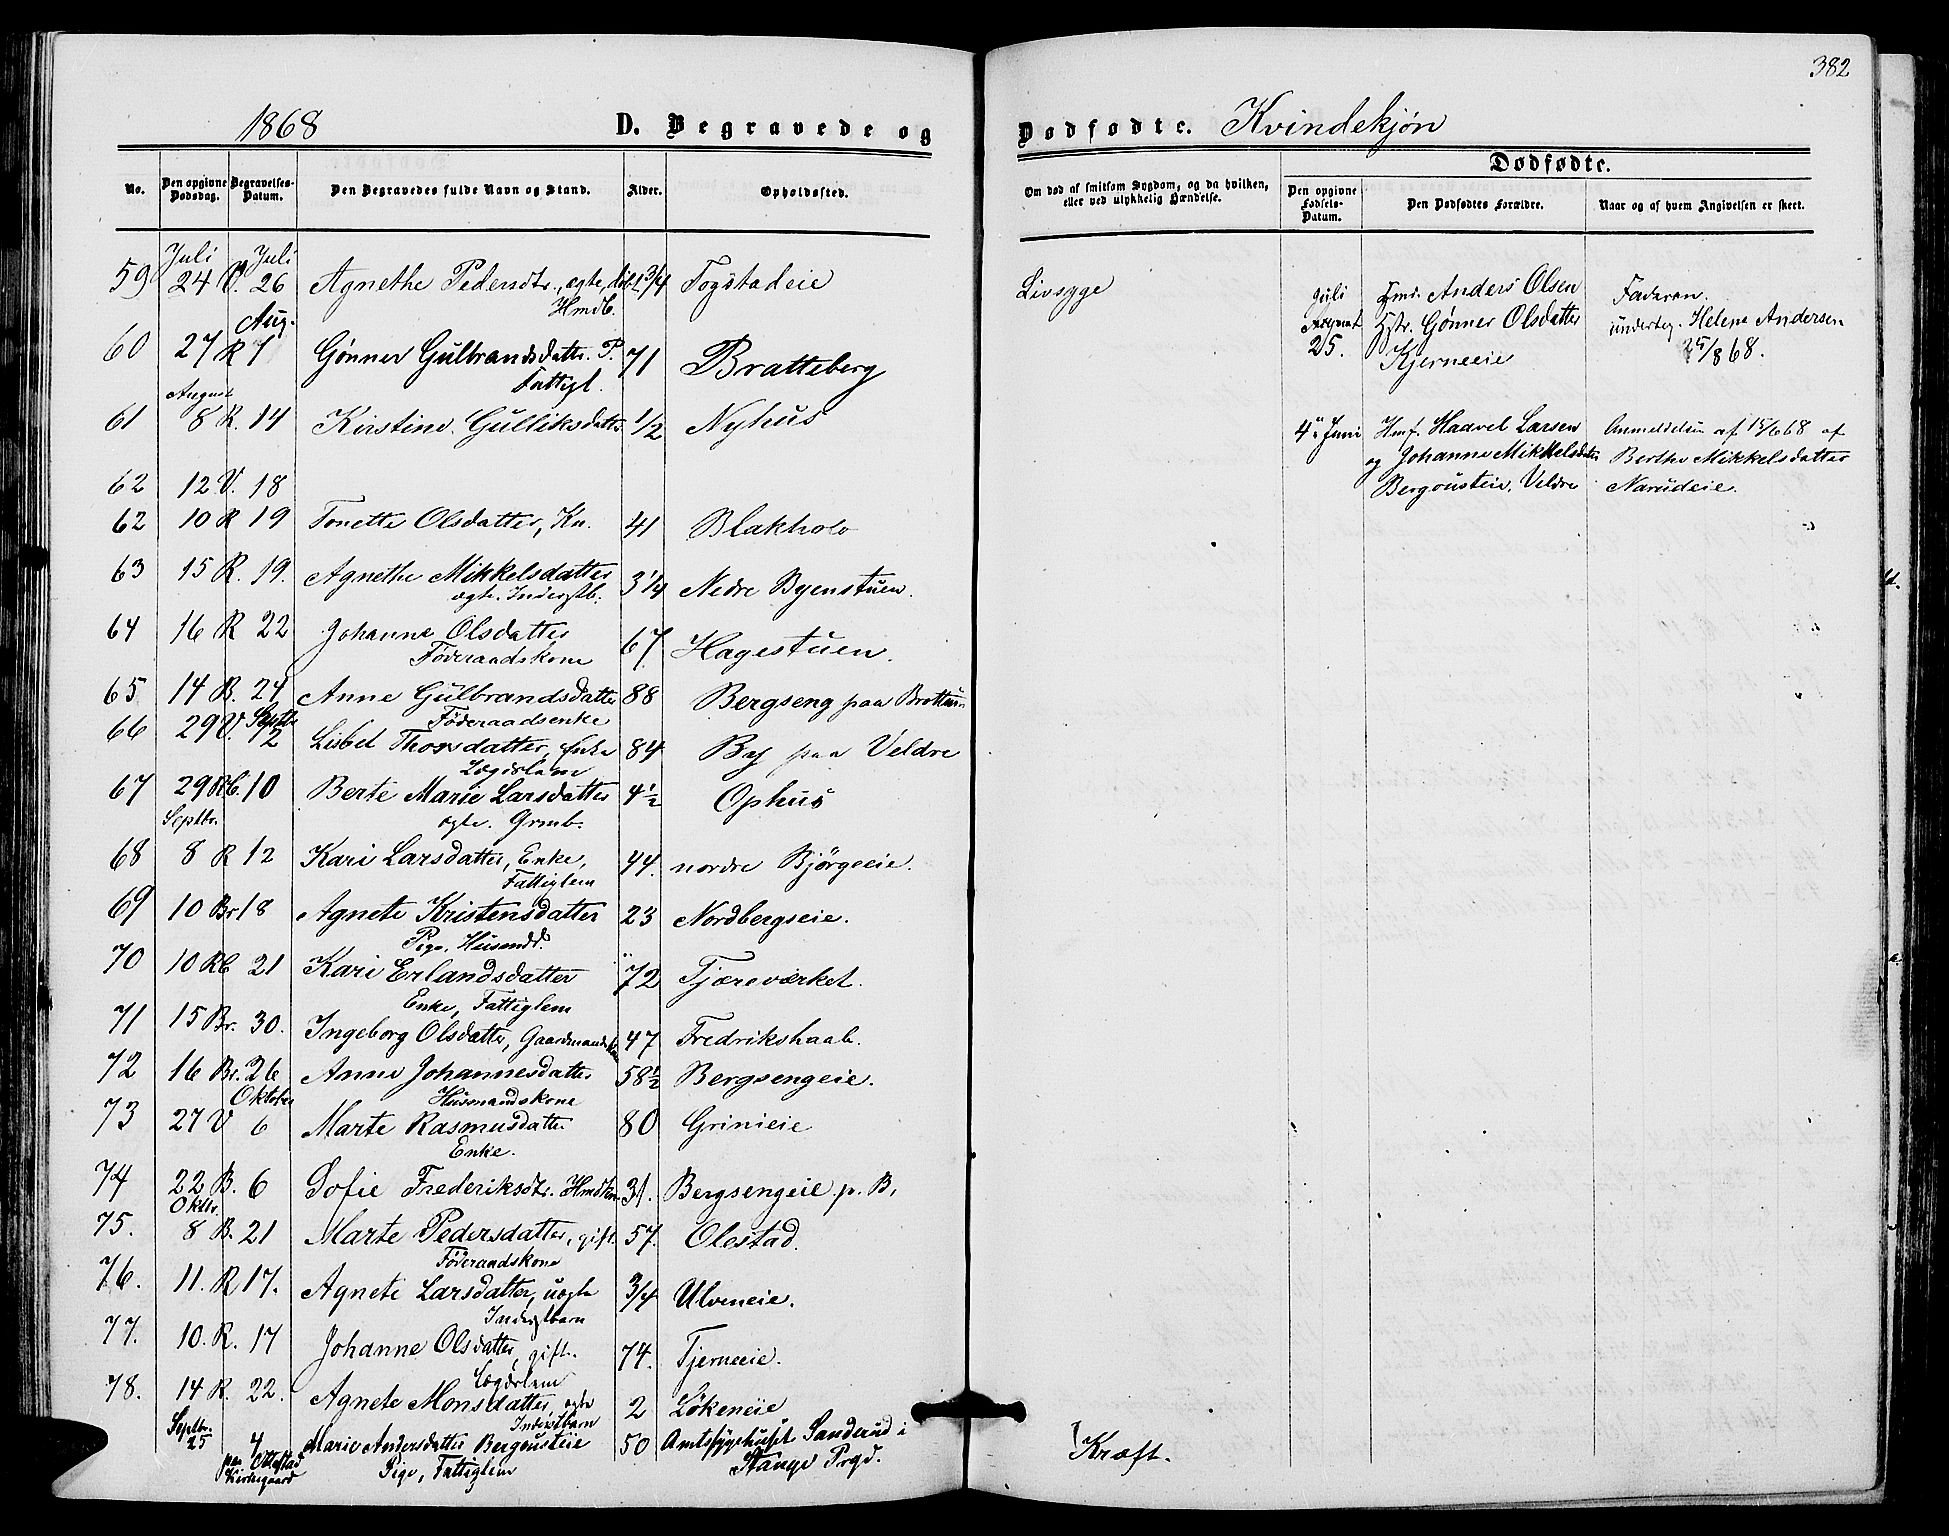 382
1868 D. Begravede og Dødfødte. Kvindekjøn
Dødfødte.
No. Den opgivne Dødsdag. Begravelses-Datum. Den Begravedes fulde Navn og Stand. Alder. Opholdssted.
Om død af smitsom Sygdom, og da hvilken, eller ved ulykkelig Hændelse. Den opgivne Fødsels-Datum. Den Dødfødtes Forældre. Naar og af hvem Angivelsen er skeet.
Juli Juli
59 24 V. 26 Agnethe Pedersdtr., ægte, 1 3/4 Togstadeie Livsyge
Hmdb.
Aug.
60 27 R 7 Gønner Gulbrandsdatter P. 71 Bratteberg
Fattigl.
August
61 8 R. 14 Kirstine Gulliksdatter 1/2 Nyhus
62 12 V. 18
62 10 R 19 Tonette Olsdatter, Kn. 41 Blakholo
63 15 R. 19. Agnethe Mikkelsdatter 3 1/4 Nedre Byenstuen.
ægte. Inderstb.
64 16 R 22 Johanne Olsdatter 67 Hagestuen.
Føderaadskone
65 14 B. 24 Anne Gulbrandsdatter 88 Bergseng paa Brottum
Føderaadsenke
Septbr
66 29 V. 2 Lisbet Thorsdatter, Enke 84 By paa Veldre
Lægdslem
67 29 Rb. 10 Berte Marie Larsdatter 4 1/2 Ophus
ægte. Grmb.
Septbr.
68 8 R 12 Kari Larsdatter, Enke, 44. nordre Bjørgeeie.
Fattiglem
69 10 Br 18 Agnete Kristensdatter 23 Nordbergseie.
Pige. Husmdd.
70 10 Rb 21 Kari Erlandsdatter 72 Tjæreværket.
Enke, Fattiglem
71 15 Br. 30. Ingeborg Olsdatter, Gaardmandskone 47 Fredrikshaab.
72 16 Br. 26 Anne Johannesdatter 58 1/2 Bergsengeie.
Husmandskone
Oktober
73 27 V 6 Marte Rasmusdatter 80 Grinieie
Enke.
74 22 B. 6 Sofie Frederiksdtr. Hmdkone 31. Bergsengeie p. B.
Oktbr.
75. 8 B. 21 Marte Pedersdatter, gift. 57. Olestad.
Føderaadskone
76. 11. R 17. Agnete Larsdatter, uægte 3/4 Ulveneie.
Inderstbarn
77. 10. R. 17 Johanne Olsdatter, gift. 74. Tjerneeie.
Lægdslem
78. 14 R. 22. Agnete Monsdatter, ægte 2 Løkeneie
Inderstbarn
Septbr. 25 4 paa Ottestad Kirkegaard Marie Andersdatter Bergousteie 50 Amtssygehuset Sanderud i Kræft.
Pige, Fattiglem Stange Prgd.
Juli 25. Anders Olsen Faderen.
Gønner Olsdatter underteg. Helene Andersen
Kjerneeie 25/8 68.
4de Juni Hmf. Haavel Larsen Anmeldelse af 15/6 68 af
og Johanne Mikkelsdatter Berthe Mikkelsdatter
Bergousteie, Veldre Narudeie.